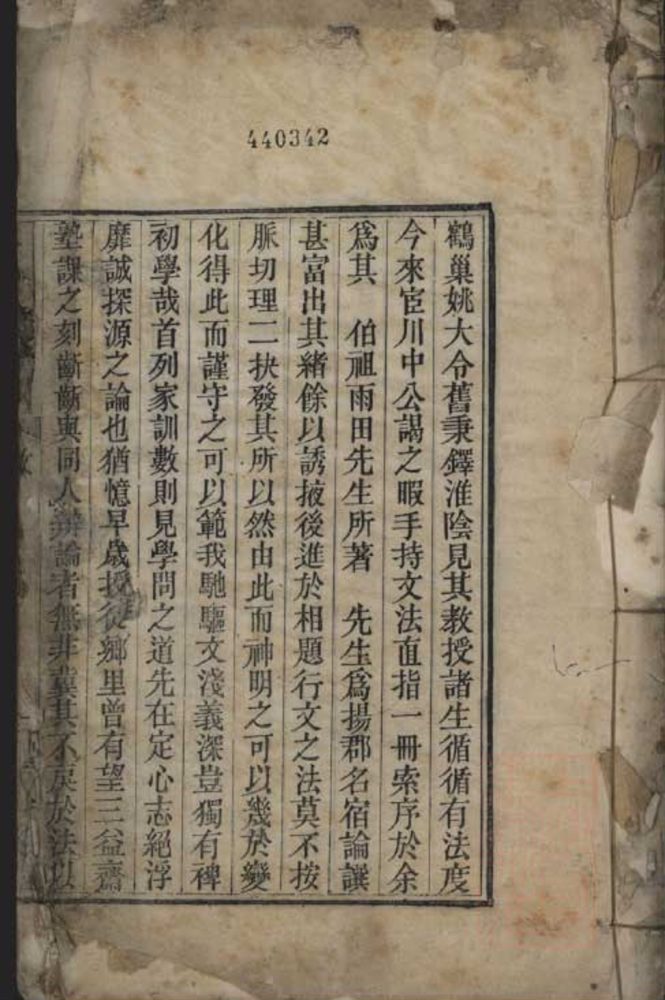 440342
鶴巢姚大令舊秉鐸淮陰見其教授諸生循循有法度
今來宦川中公謁之暇手持文法直指一冊索序於余
爲其　伯祖雨田先生所著　先生爲揚郡名宿論譔
甚富出其緒餘以誘掖後進於相題行文之法莫不按
脈切理二抉發其所以然由此而神明之可以幾於變
化得此而謹守之可以範我馳驅文淺義深豈獨有裨
初學哉首列家訓數則見學問之道先在定心志絕浮
靡誠探源之論也猶憶早歲授徒鄉里曾有望三益齋
塾課之刻齗齗與同人辨論者無非冀其不戾於法以